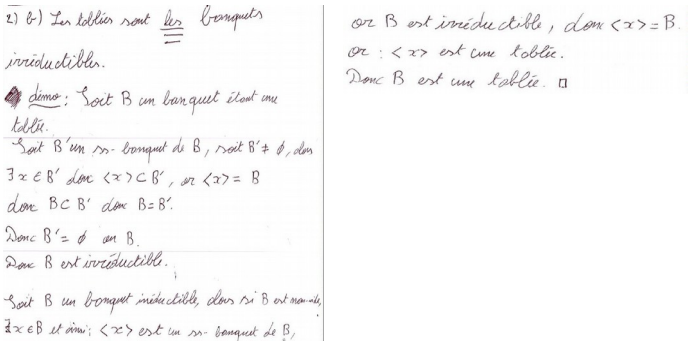 2) b) Les tablées sont les banquets
irréductibles.
démo : Soit B un banquet étant une
tablée.
Soit B' un ss-banquet de B, soit B' ≠ ∅, alors
∃ x ∈ B' donc <x> ⊂ B', or <x> = B
donc B ⊂ B' donc B = B'.
Donc B' = ∅ ou B.
Donc B est irréductible.
Soit B un banquet irréductible, alors si B est non-vide,
∃ x ∈ B et ainsi : <x> est un ss-banquet de B,
or B est irréductible, donc <x> = B.
or : <x> est une tablée.
Donc B est une tablée. □